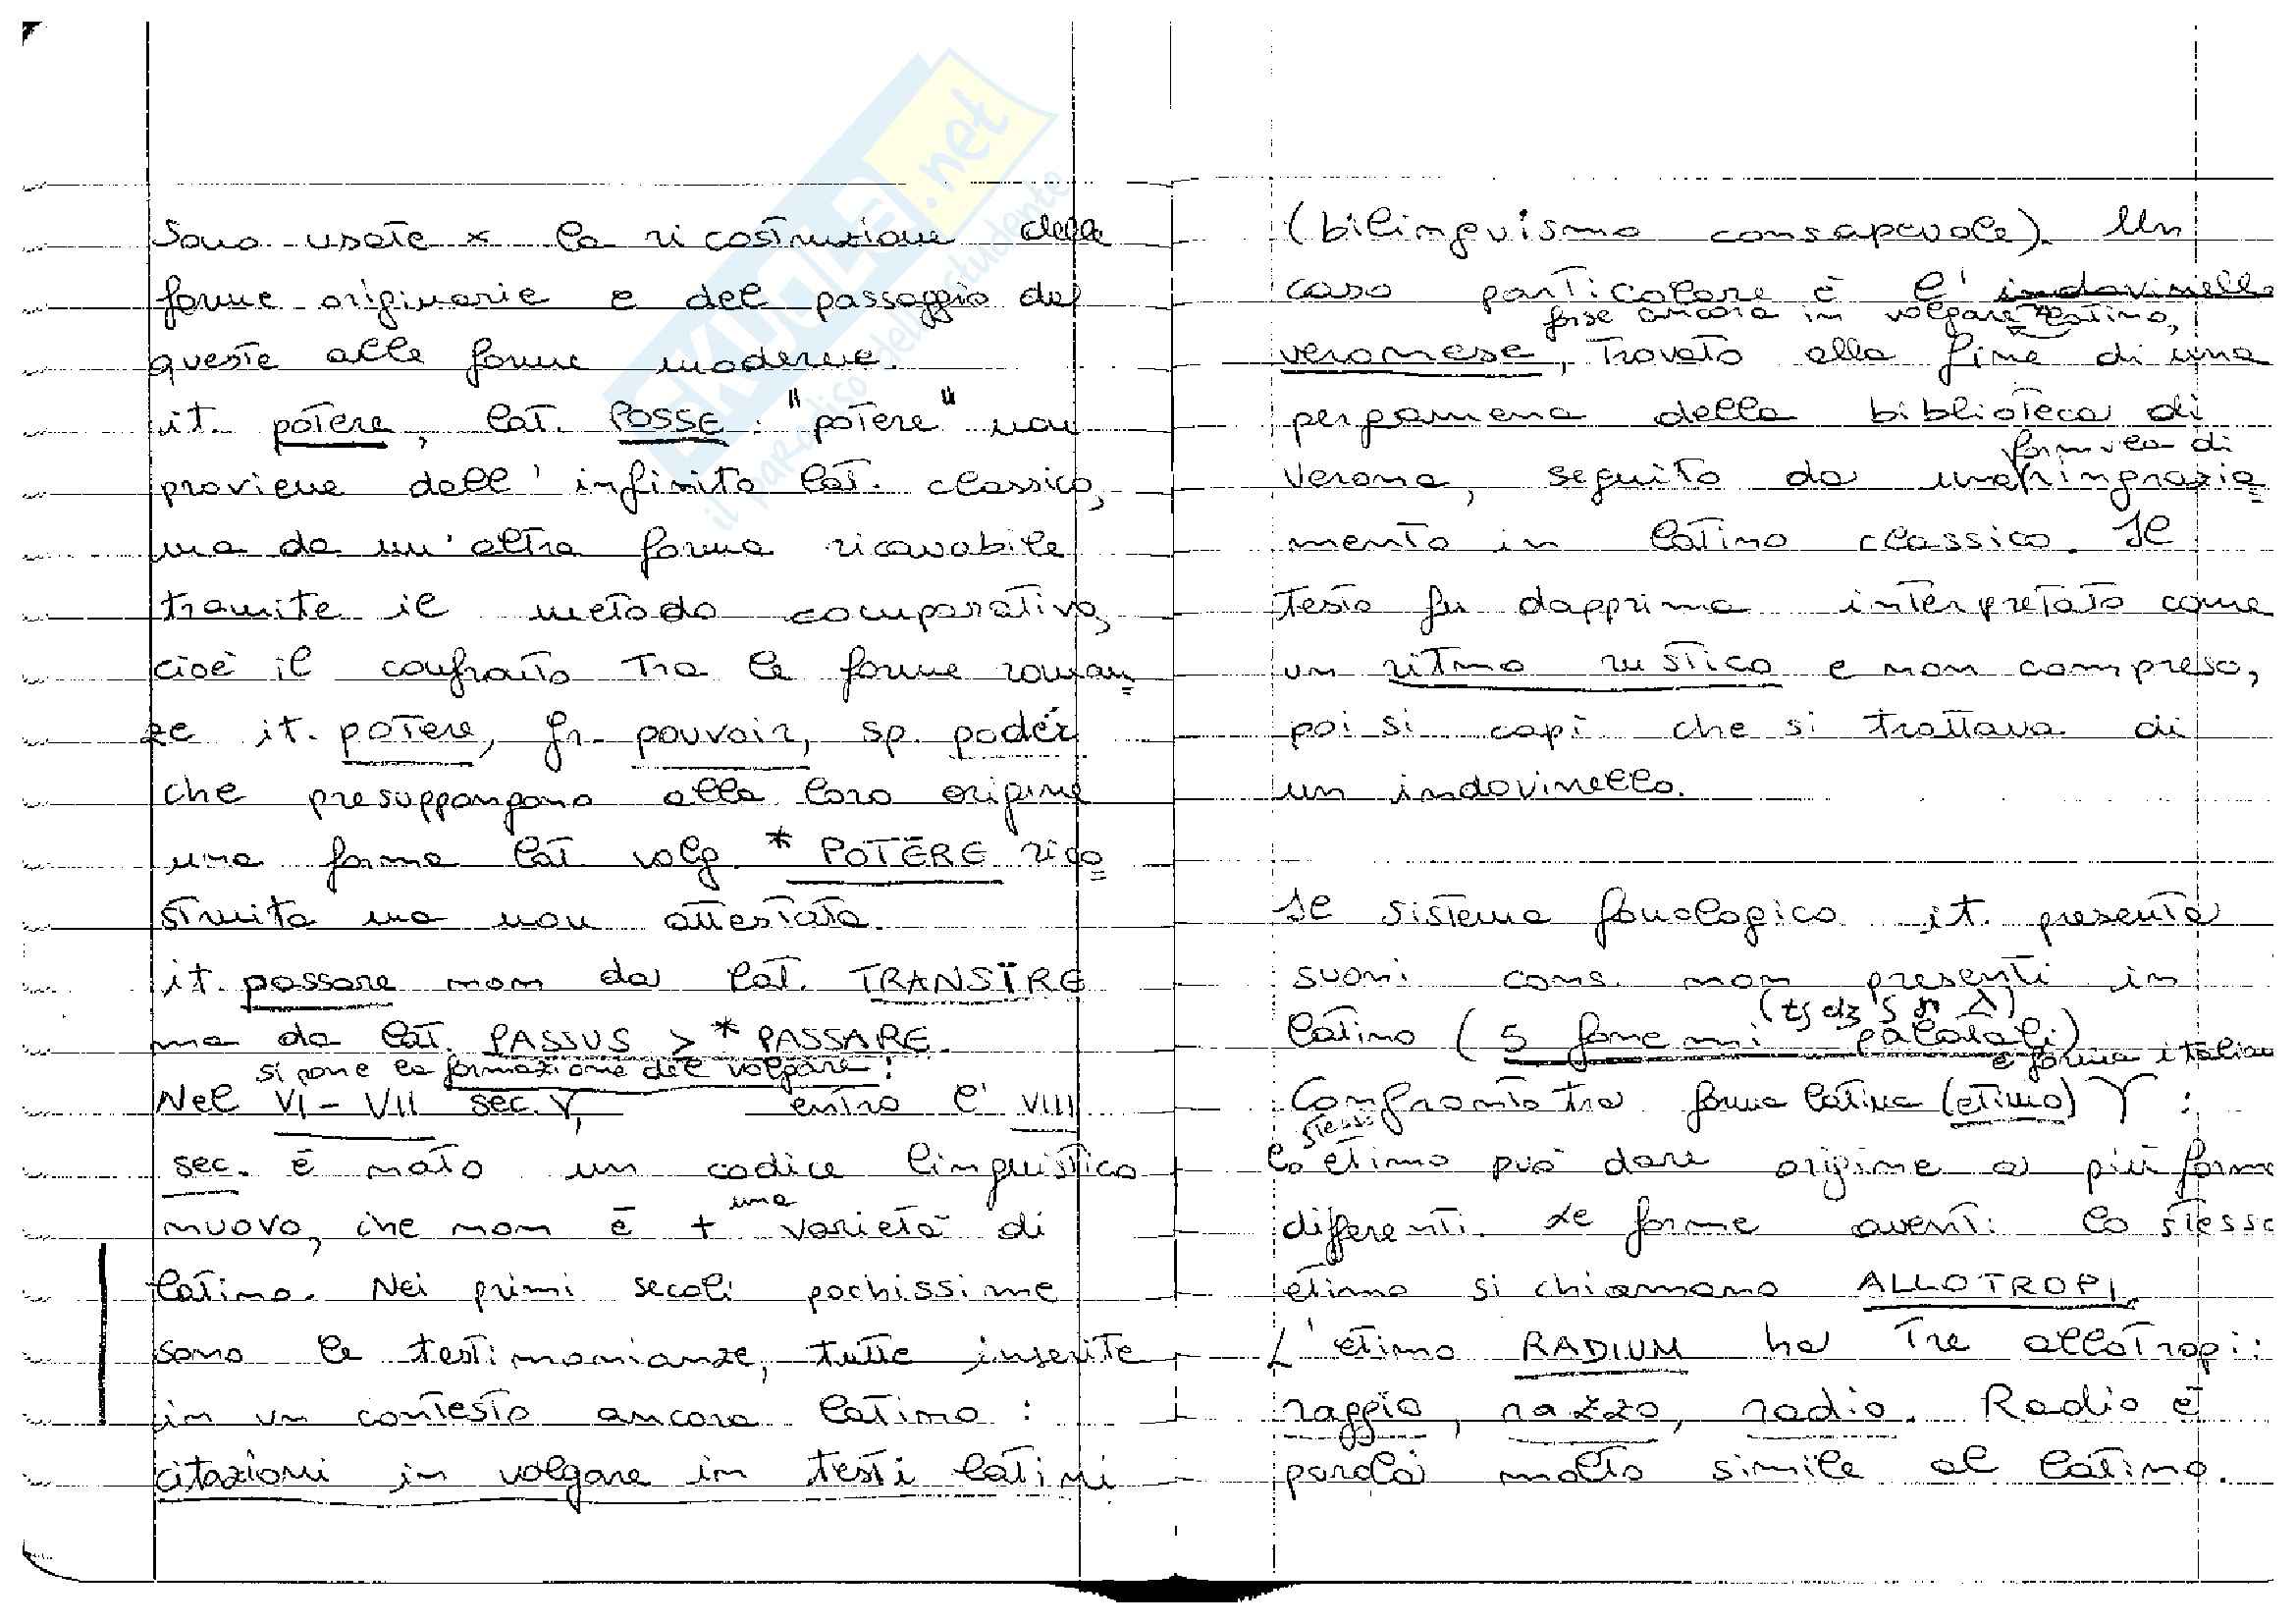 sono usate x la ricostruzione delle
forme originarie e del passaggio da
queste alle forme moderne.
it. potere, lat. POSSE: "potere" non
proviene dall'infinito lat. classico,
ma da un'altra forma ricavabile
tramite il metodo comparativo,
cioè il confronto tra le forme roman=
ze it. potere, fr. pouvoir, sp. podér
che presuppongono alla loro origine
una forma lat. volg. *POTĒRE rico=
struita ma non attestata.
it. passare non da lat. TRANSĪRE
ma da lat. PASSUS > *PASSARE.
si pone la formazione del volgare:
Nel VI - VII sec. V, entro l'VIII
sec. è nato un codice linguistico
nuovo, che non è + una varietà di
latino. Nei primi secoli pochissime
sono le testimonianze, tutte inserite
in un contesto ancora latino:
citazioni in volgare in testi latini
(bilinguismo consapevole). Un
caso particolare è l'indovinello
forse ancora in volgare latino,
veronese, trovato alla fine di una
pergamena della biblioteca di
formula di
Verona, seguito da una ringrazia=
mento in latino classico. Il
testo fu dapprima interpretato come
un ritmo rustico e non compreso,
poi si capì che si trattava di
un indovinello.
Il sistema fonologico it. presenta
suoni cons. non presenti in
(tʃ dʒ ʃ ɲ ʎ)
latino (5 fonemi palatali)
e forma italian
Confronto tra forma latina (etimo) Y :
stesso
Lo etimo può dare origine a più forme
differenti. Le forme aventi lo stesso
etimo si chiamano ALLOTROPI.
L'etimo RADIUM ha tre allotropi:
raggio, razzo, radio. Radio è
parola molto simile al latino.
SKUOLA.net
il paradiso dello studente